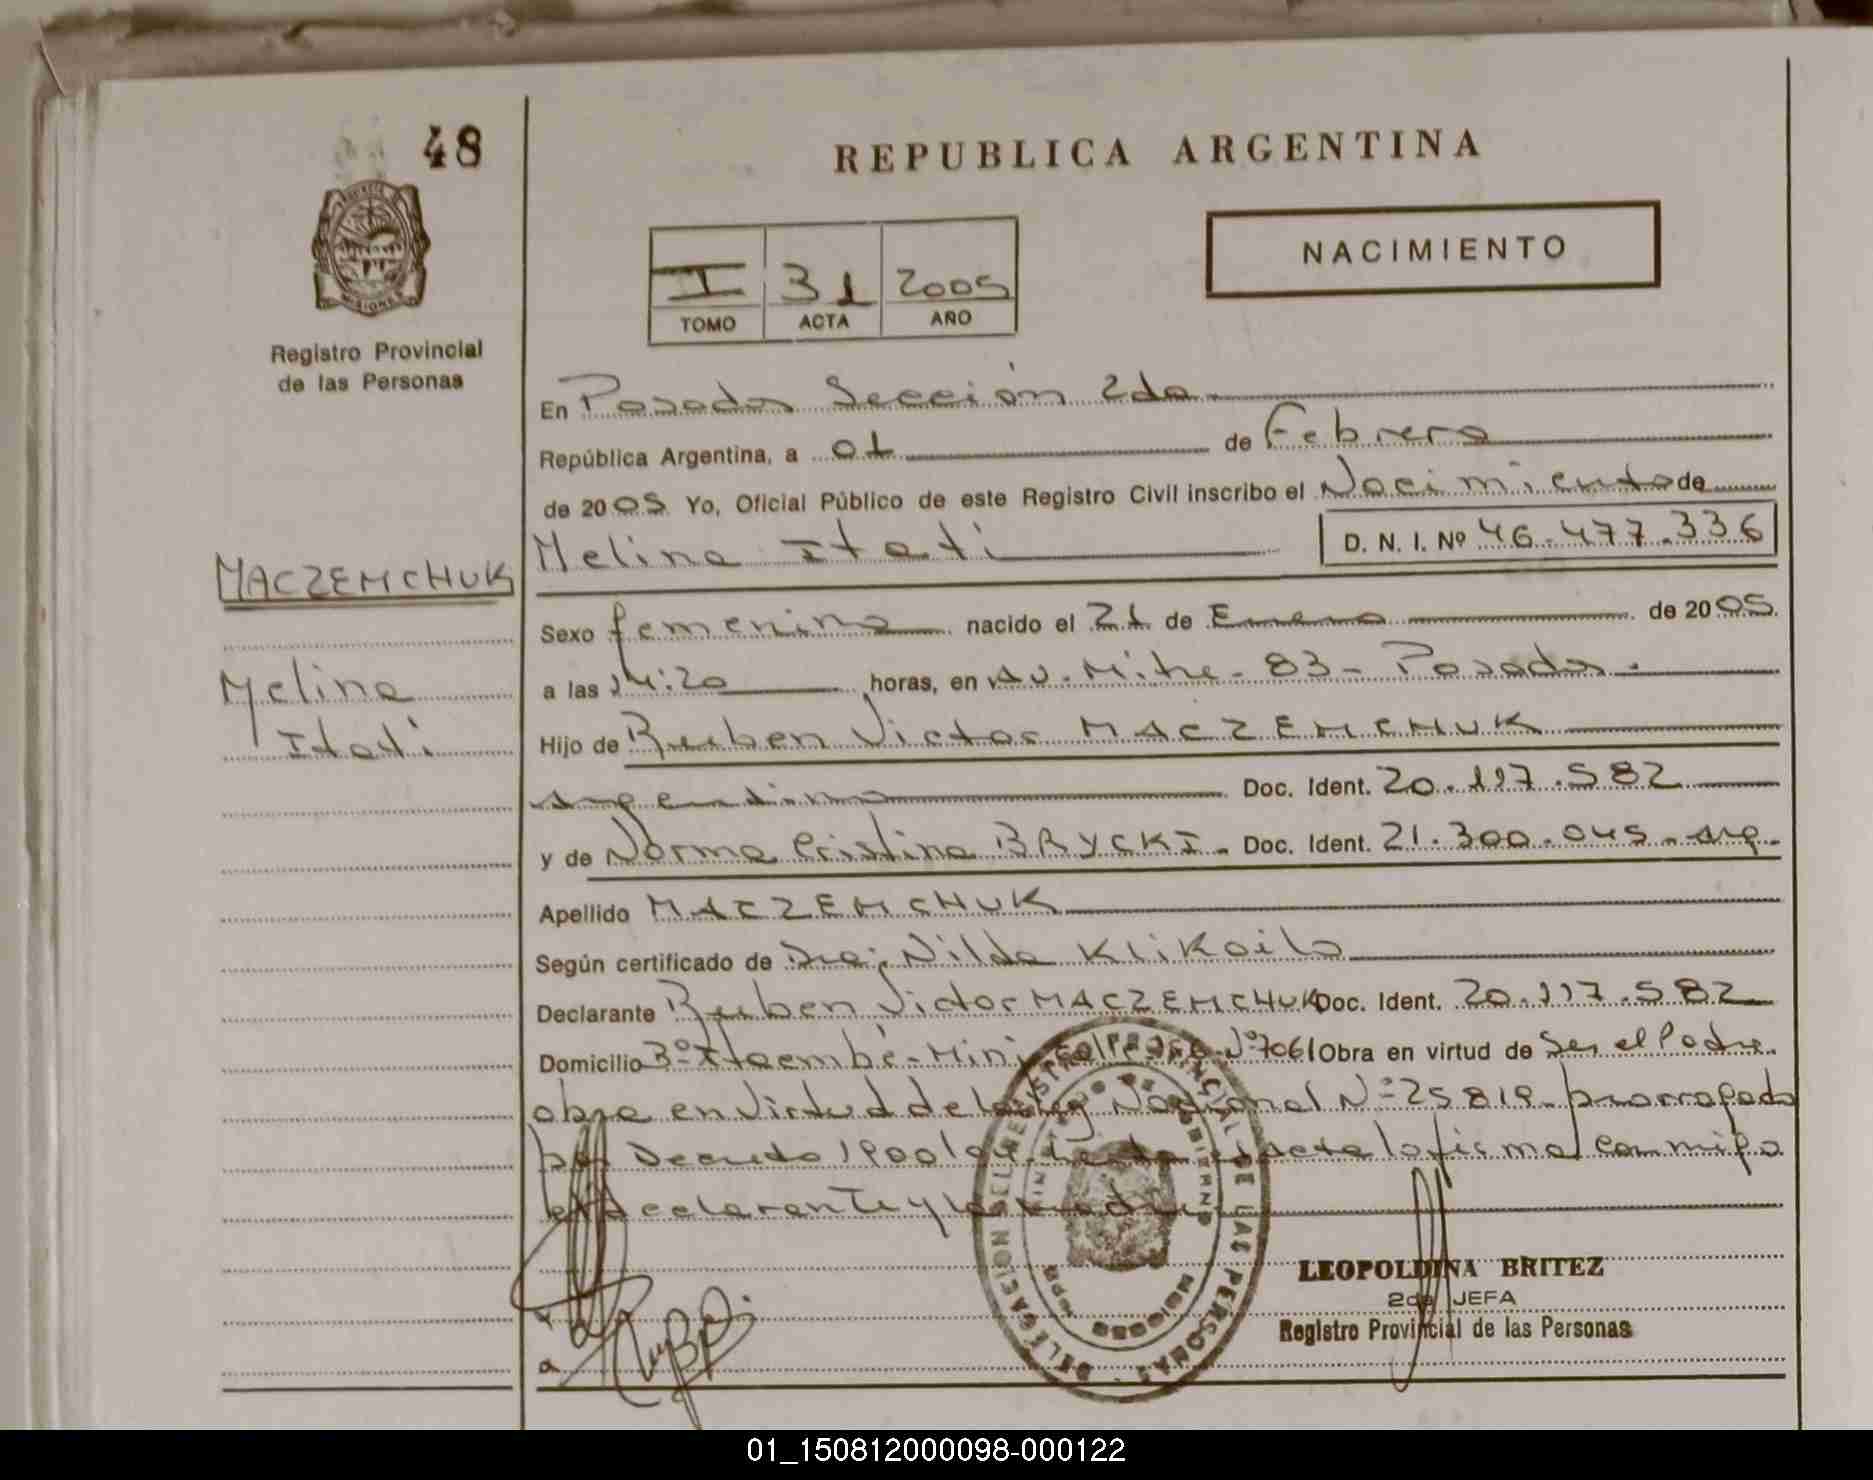 48
REPUBLICA ARGENTINA
NACIMIENTO
I 31 2005
TOMO ACTA AÑO
MISIONES
Registro Provincial
de las Personas
En Posadas Sección 2da
República Argentina, a 01 de Febrero
de 2005 Yo, Oficial Público de este Registro Civil inscribo el Nacimiento de
Melina Itati D. N. I. Nº 46.477.336
MACZEMCHUK
Melina
Itati
Sexo femenino nacido el 21 de Enero de 2005
a las 14:20 horas, en Av. Mitre - 83 - Posadas.
Hijo de Ruben Victor MACZEMCHUK
argentino Doc. Ident. 20.117.582
y de Norma Cristina BRYCKI - Doc. Ident. 21.300.045 - arg.
Apellido MACZEMCHUK
Según certificado de Dra; Nilda
Declarante Ruben Victor MACZEMCHUK Doc. Ident. 20.117.582
Domicilio 3º Itaembé - Mini Nº 7061 Obra en virtud de Ser el Padre.
obra en virtud de la Ley Nacional Nº 25819 prorrogado
por Decreto 1900/04 acta la firma conmigo
el declarante y la madre
DELEGACION DEL REGISTRO PROVINCIAL DE LAS PERSONAS
LEOPOLDINA BRITEZ
2da JEFA
Registro Provincial de las Personas
01_150812000098-000122